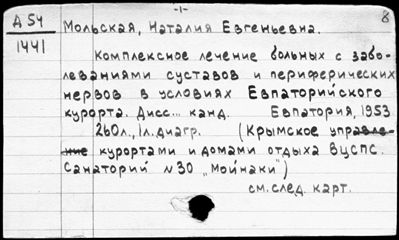 -1-
8
А 54
1441
Мольская, Наталия Евгеньевна.
Комплексное лечение больных с забо-
леваниями суставов и периферических
нервов в условиях Евпаторийского
курорта. Дисс... канд. Евпатория, 1953
260л., 1л. диагр. (Крымское управле-
ние курортами и домами отдыха ВЦСПС.
Санаторий №30 „Мойнаки")
см. след. карт.